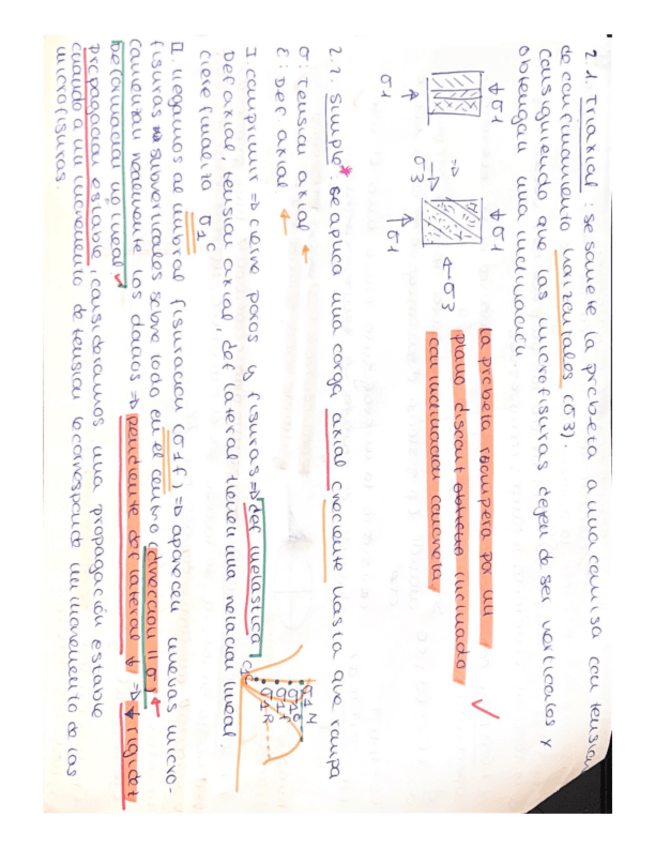 2.1. Triaxial : se somete la probeta a una camisa con tensión
de confinamiento horizontales (σ3).
Consiguiendo que las microfisuras dejen de ser verticales y
obtengan una inclinación.
↓σ1 ↓σ1
σ3 ←σ3
σ1 ↑ ↑σ1
la probeta romperá por un
plano discont inclinado
con inclinación concreta
2.2. Simple* : se aplica una carga axial creciente hasta que rompa
σ: Tensión axial ←
ε: Def axial ←
I. comprimir => cierre poros y fisuras => def inelastica
Def axial, tensión axial, def lateral tienen una relación lineal.
cierre finaliza σ1c
σ1M
σ1C
σ1f
II. llegamos al umbral fisuración (σ1f) => aparecen nuevas micro-
fisuras subverticales sobre todo en el centro (dirección || σ) ←
comienzan realmente los daños => pendiente def lateral ↓ => ↓ rigidez
Deformación no lineal ✓
propagación estable, consideramos una propagación estable
cuando a un incremento de tensión le corresponde un incremento de las
microfisuras.